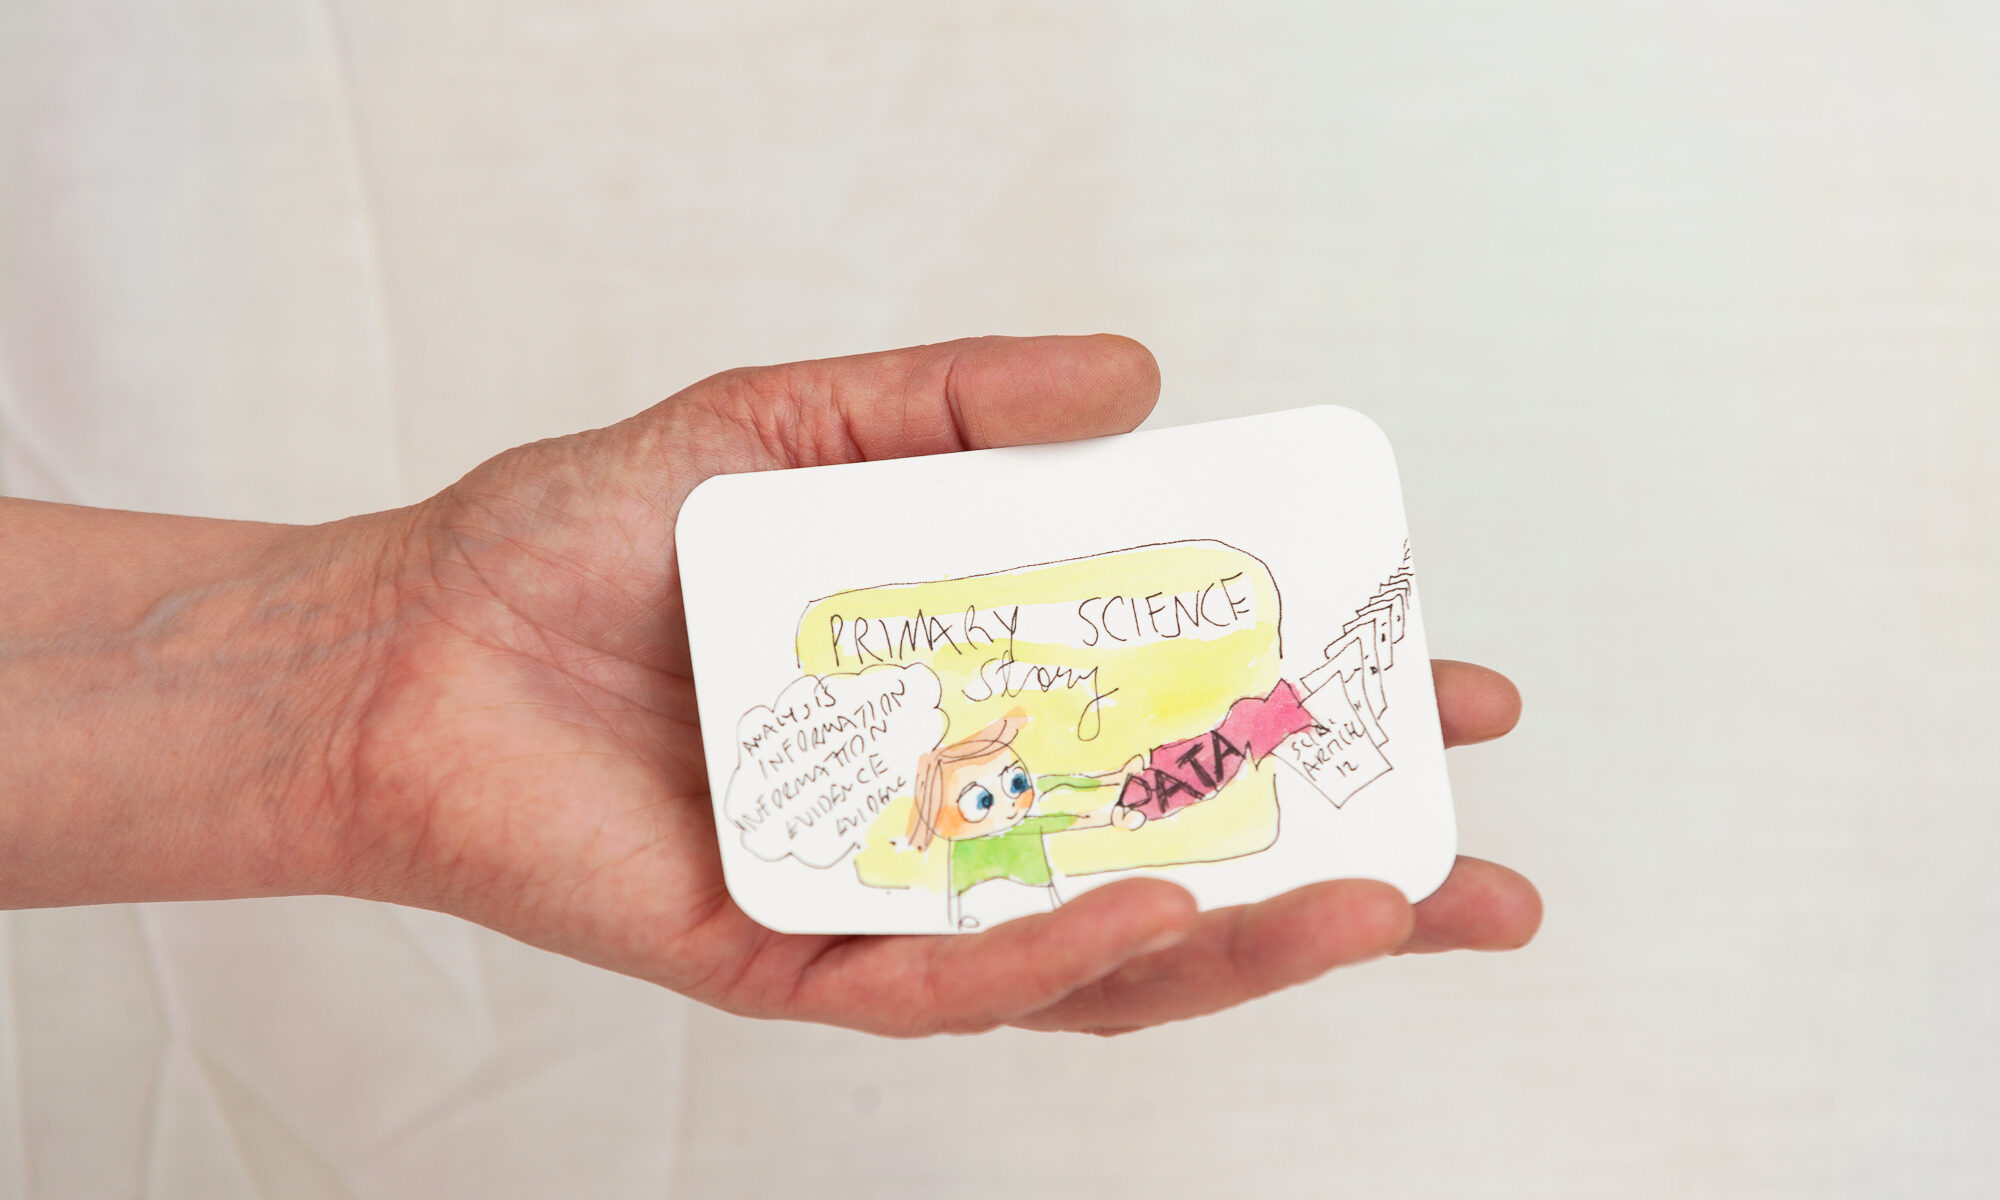 PRIMARY SCIENCE
story
ANALYSIS
INFORMATION
INFORMATION
EVIDENCE
EVIDENC
DATA
SCI.
ARTICLE
12